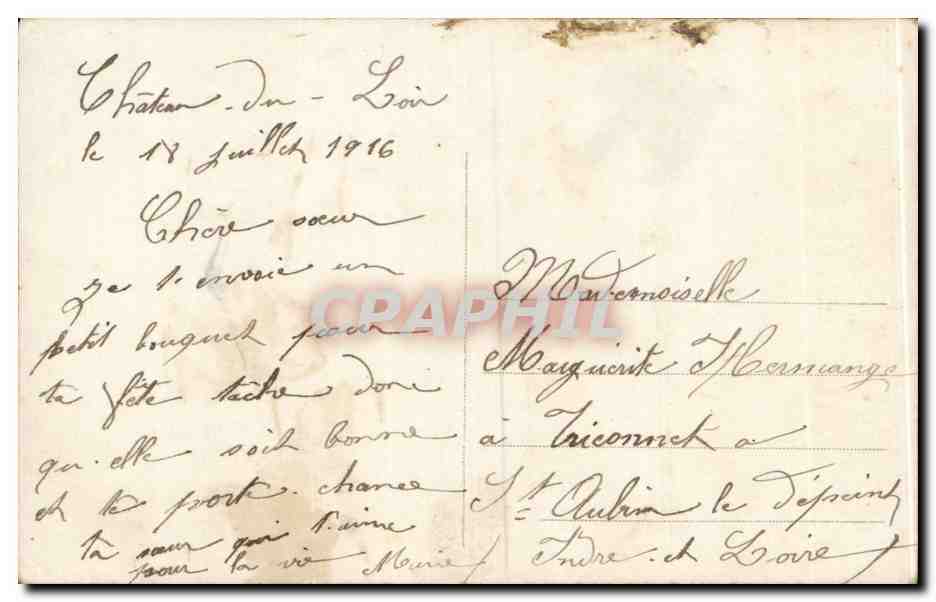 Château-du-Loir
le 18 juillet 1916
Chère sœur
je t'envoie un
petit bouquet pour
ta fête tâche donc
qu'elle soit bonne
et te porte chance
ta sœur qui t'aime
pour la vie Marie
CPAPHIL
Mademoiselle
Marguerite Hermange
à Triconnet a
St Aubin le dépeint
Indre et Loire